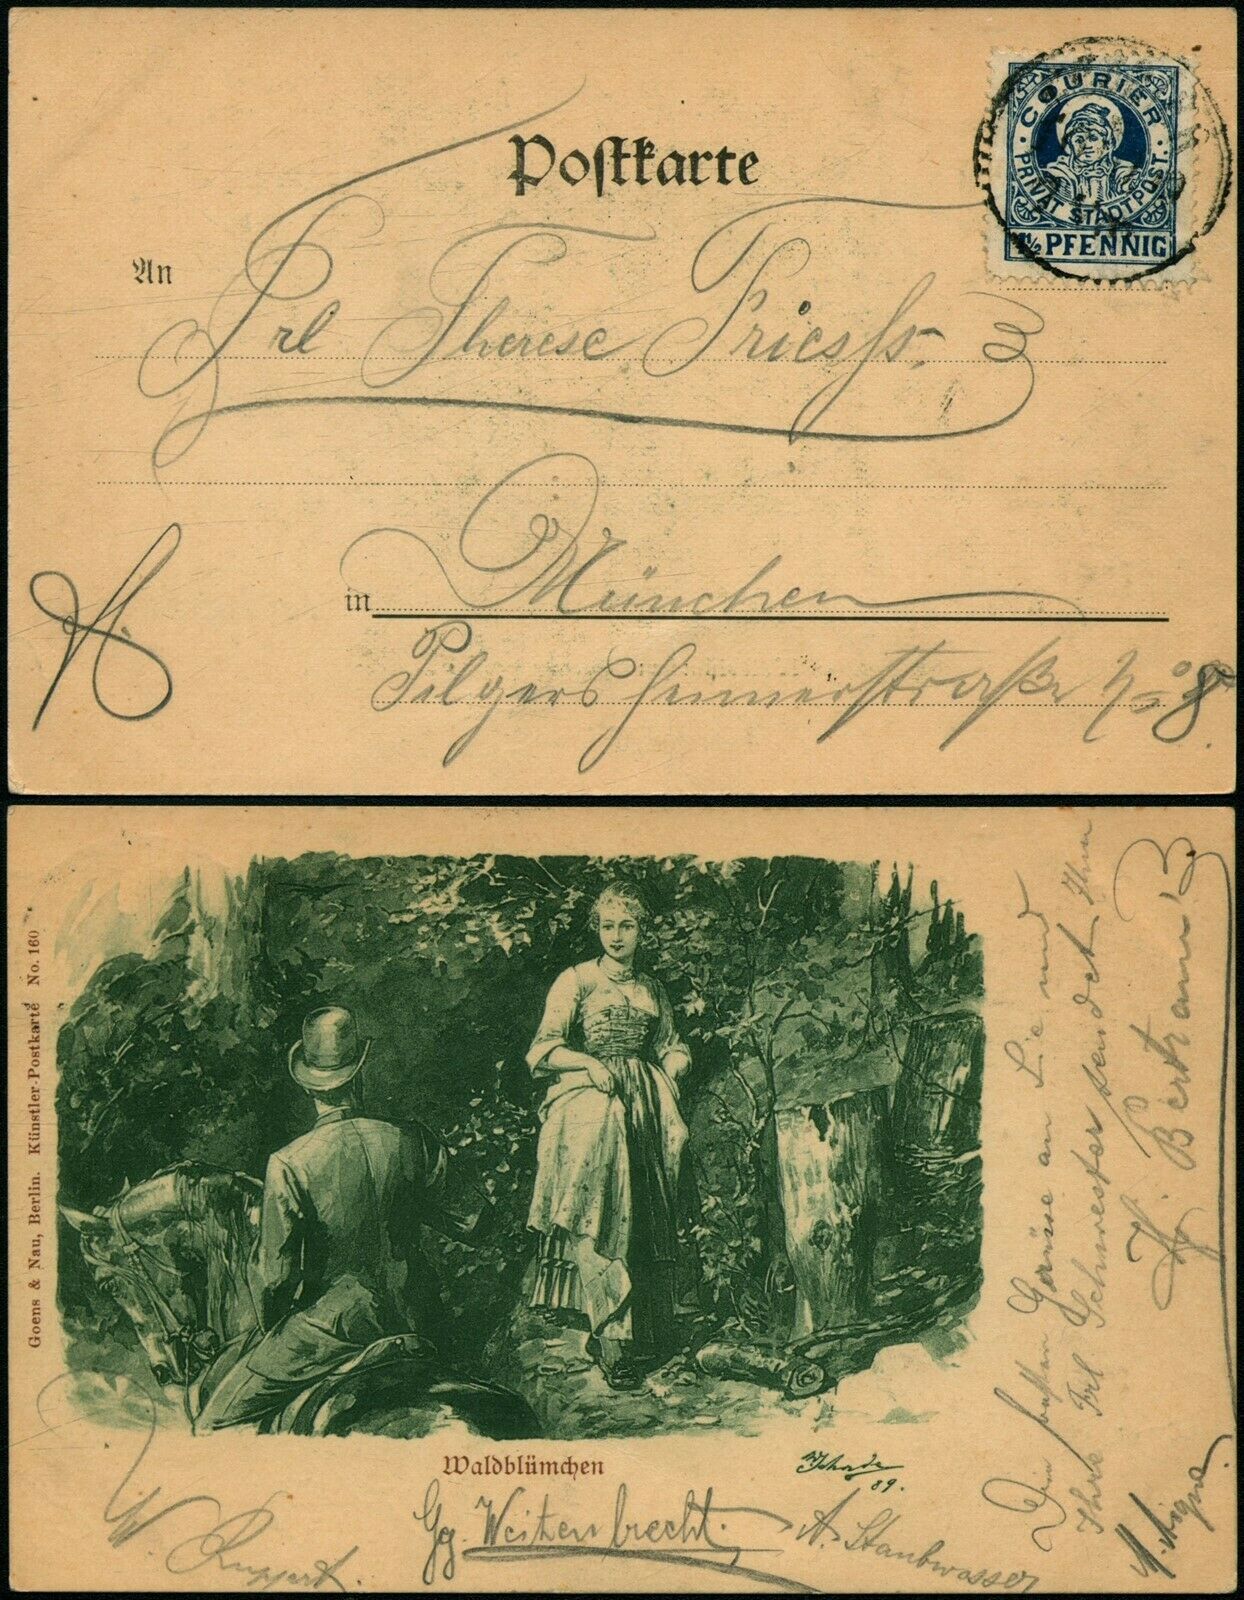 Postkarte
COURIER
PRIVAT STADTPOST.
1½ PFENNIG
An
Frl Therese
in München
Pilgersheimerstraße No 8.
Goens & Nau, Berlin. Künstler-Postkarte No. 160
Waldblümchen
89.
Die besten Grüsse an Sie und
Ihre Frl Schwester sendet Ihnen
H. Bertram
W. Ruppert.
Gg. Weitenbrecht.
A. Staubwasser